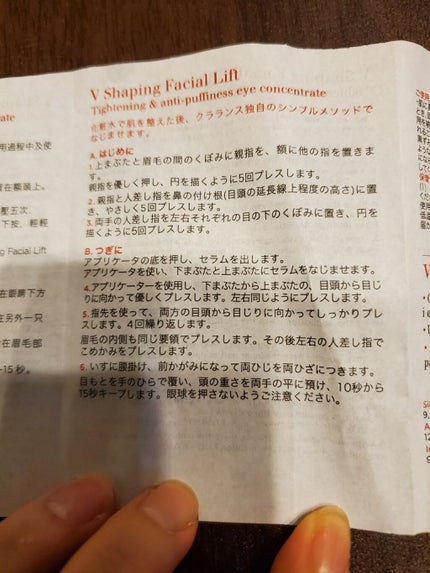 V Shaping Facial Lift
Tightening & anti-puffiness eye concentrate
化粧水で肌を整えた後、クラランス独自のシンプルメソッドで
なじませます。
A. はじめに
1.上まぶたと眉毛の間のくぼみに親指を、額に他の指を置きま
す。
親指を優しく押し、円を描くように5回プレスします。
2. 親指と人差し指を鼻の付け根(目頭の延長線上程度の高さ)に置
き、やさしく5回プレスします。
3. 両手の人差し指を左右それぞれの目の下のくぼみに置き、円を
描くように5回プレスします。
B. つぎに
アプリケータの底を押し、セラムを出します。
アプリケータを使い、下まぶたと上まぶたにセラムをなじませます。
4.アプリケーターを使用し、下まぶたから上まぶたの、目頭から目じ
りに向かって優しくプレスします。左右同じようにプレスします。
5. 指先を使って、両方の目頭から目じりに向かってしっかりプレ
スします。4回繰り返します。
眉毛の内側も同じ要領でプレスします。その後左右の人差し指で
こめかみをプレスします。
6. いすに腰掛け、前かがみになって両ひじを両ひざにつきます。
目もとを手のひらで覆い、頭の重さを両手の平に預け、10秒から
15秒キープします。眼球を押さないようご注意ください。
用過程中及使
在額頭上。
壓五次、
下按、輕輕
ng Facial Lift
在眼睛下方
在另外一只
在眉毛部
-15 秒。